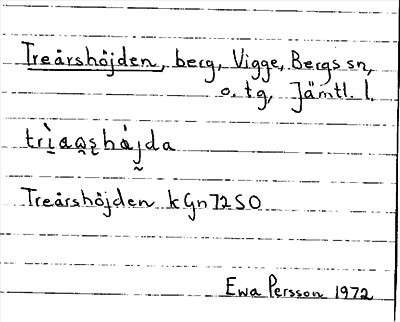 Treårshöjden, berg, Vigge, Bergs sn,
o. tg, Jämtl. l.
trì̱a̯ẙshȧj̰da
Treårshöjden kGn72SO
Ewa Persson 1972